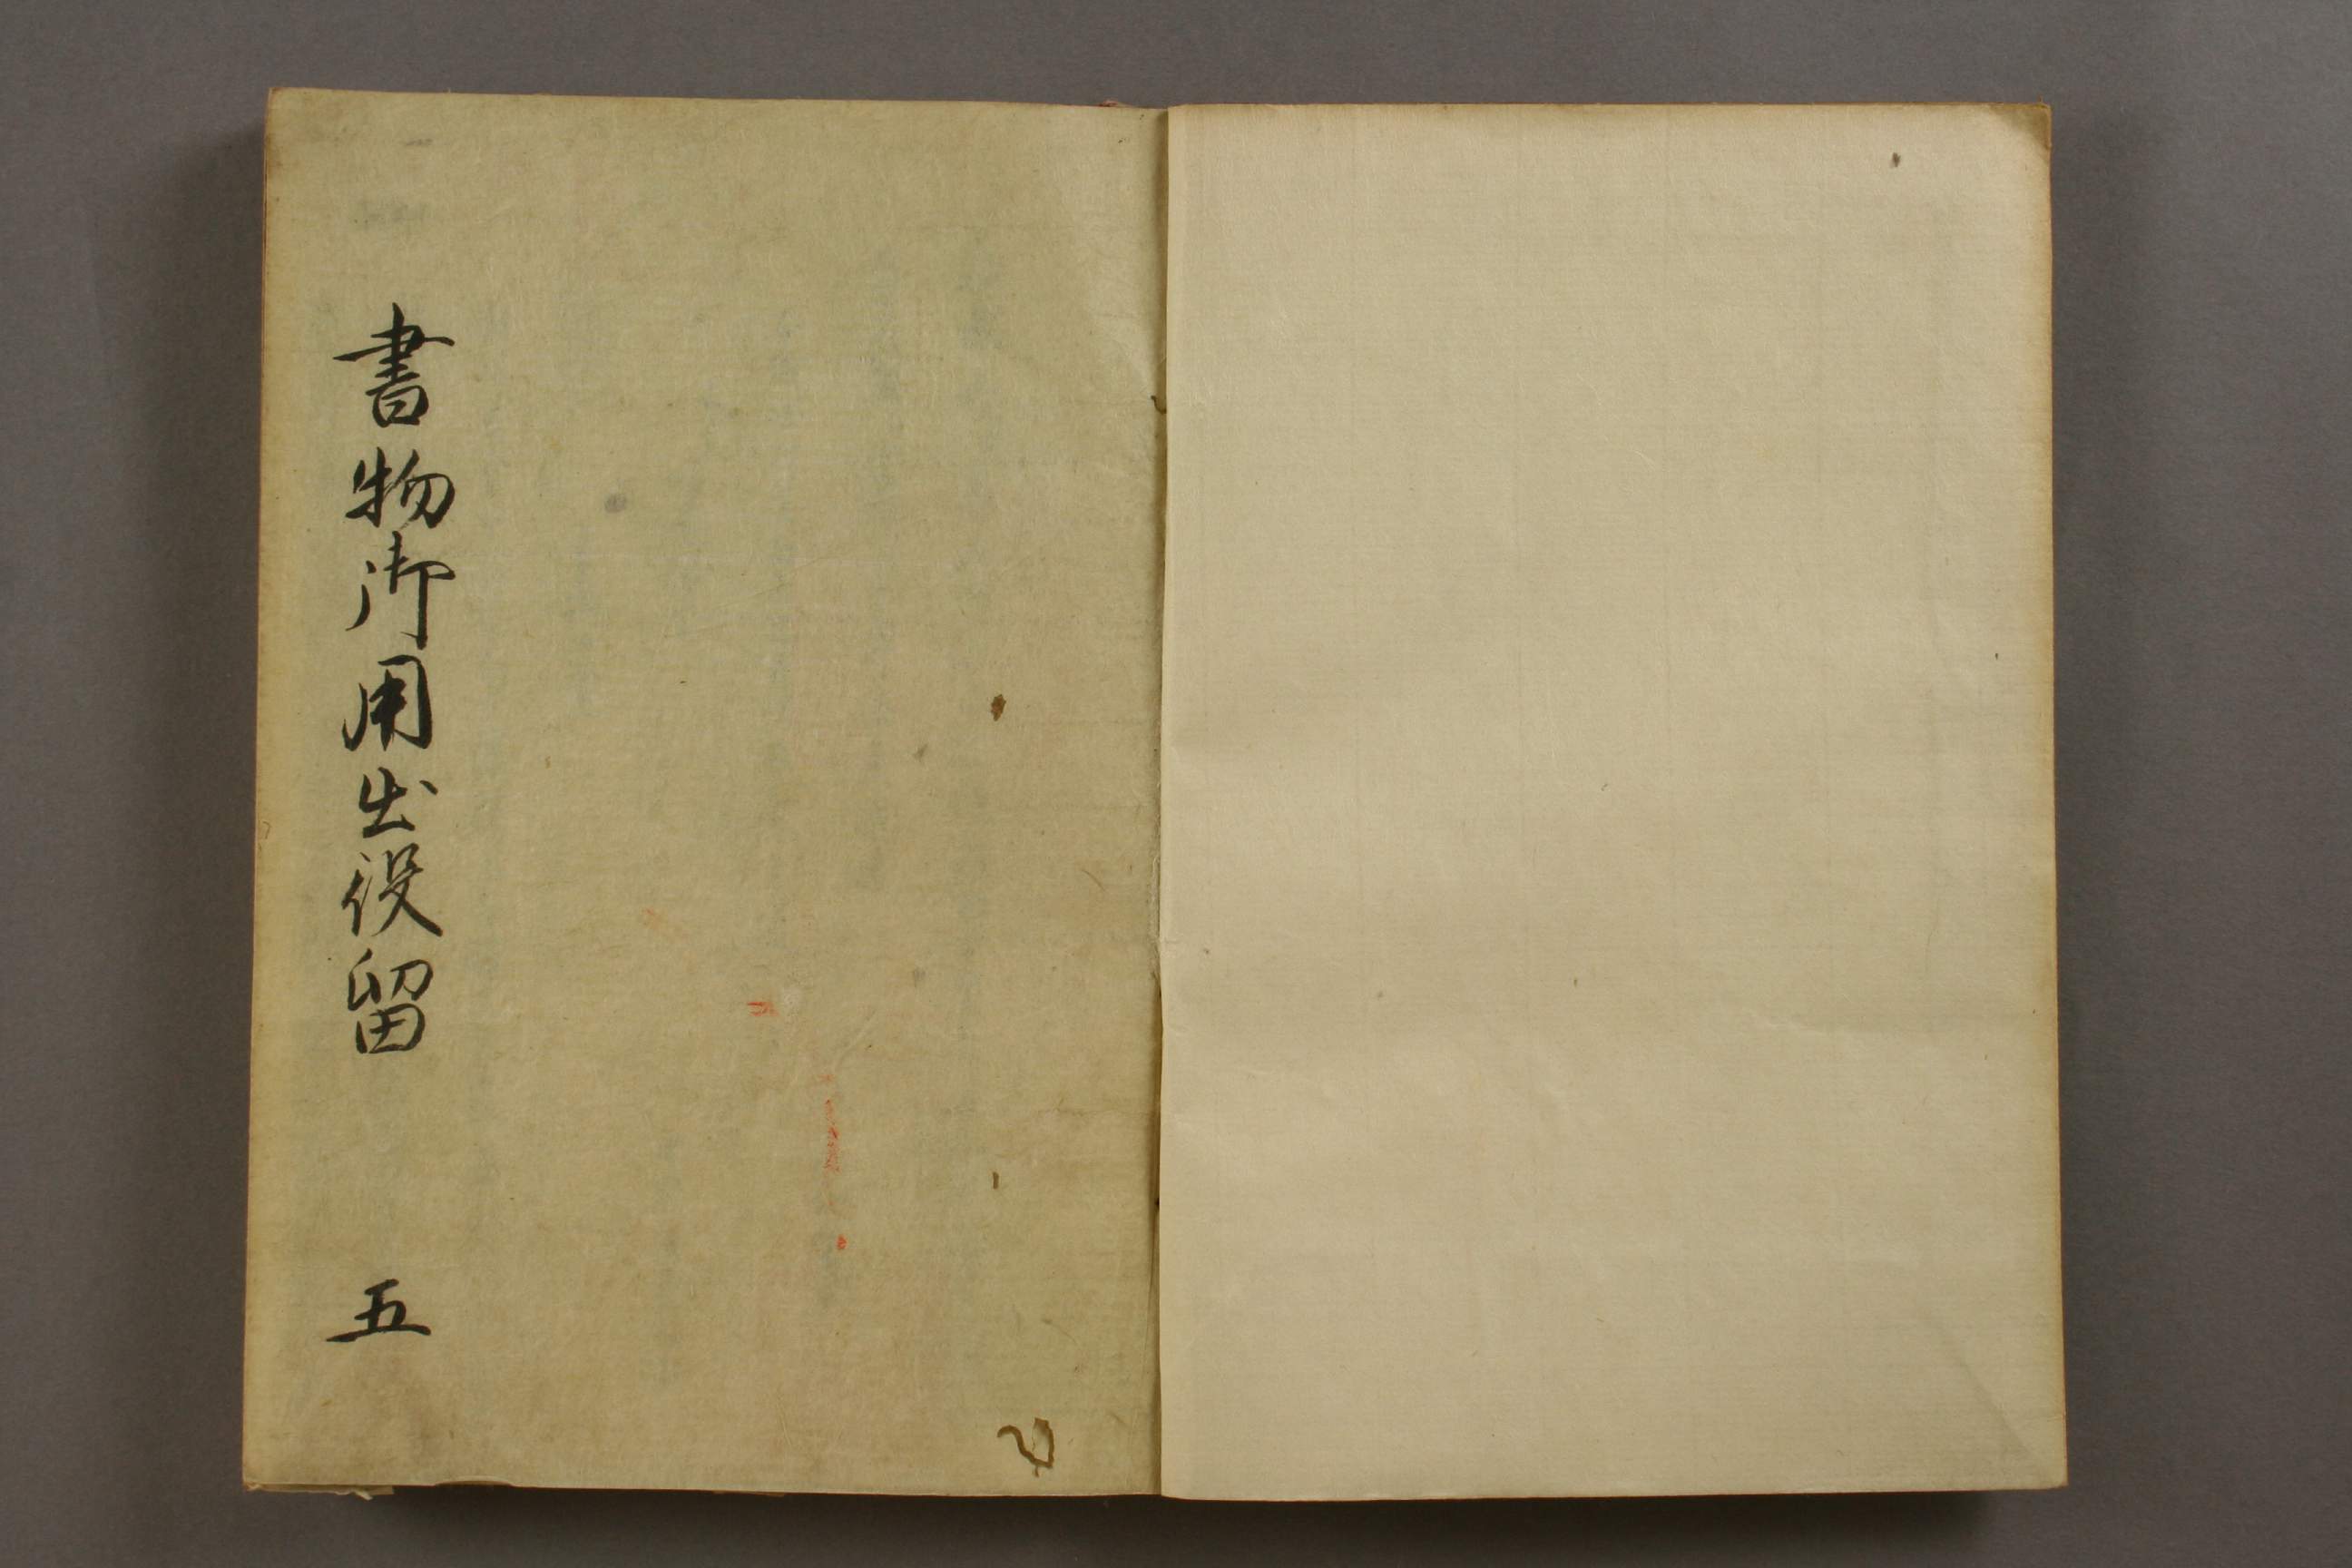 書物御用出役留 五